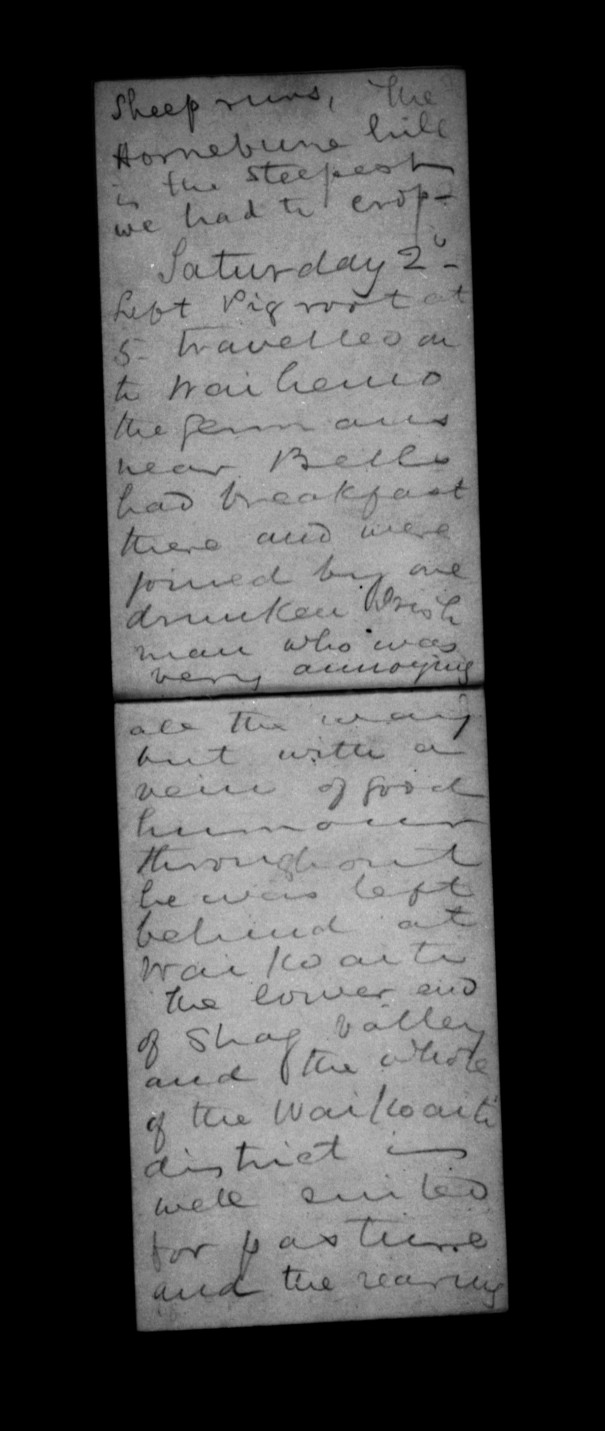 Sheep runs, The
Hornebune hill
is the steepest
we had to crop-
Saturday 2d-
Left Pigroot at
5- travelled on
to Waihemo
the Germans
near Bells
had breakfast
there and were
joined by one
drunken Irish
man who was
very annoying
all the way
but with a
vein of good
humour
throughout
he was left
behind at
Waikoaiti
The lower end
of Shag Valley
and the whole
of the Waikoaiti
district is
well suited
for pasture
and the rearing